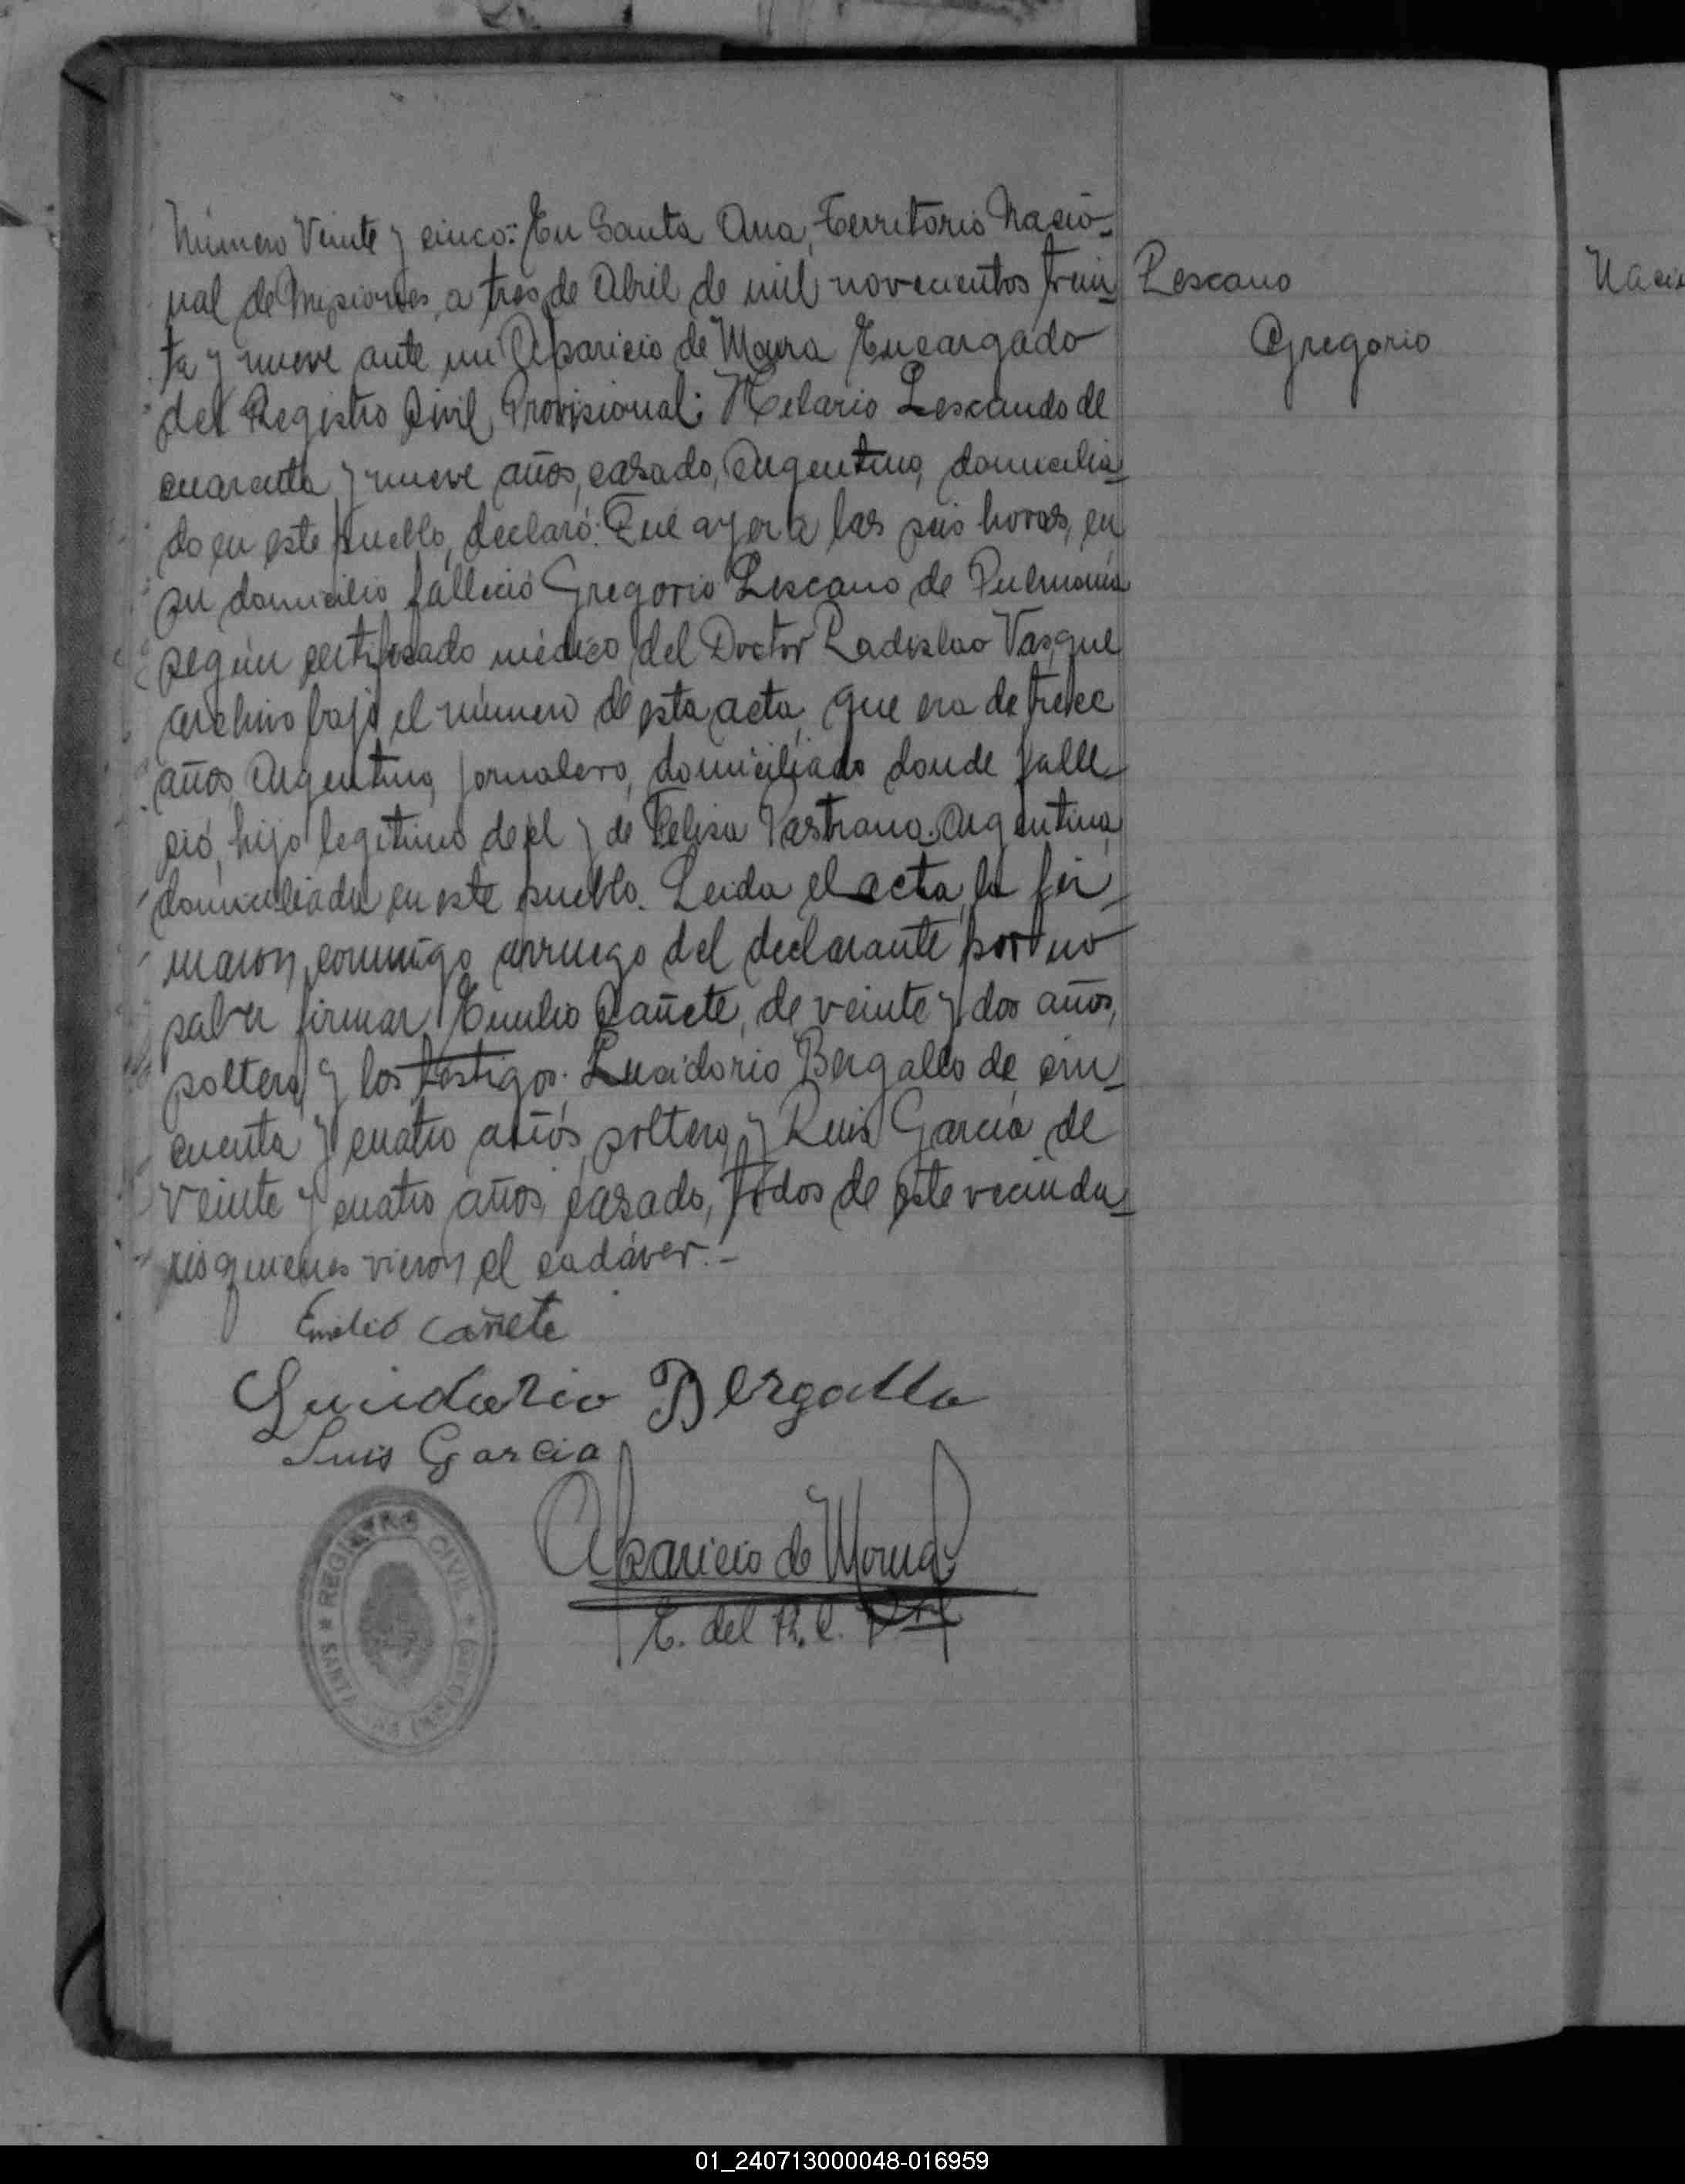 Número Veinte y cinco: En Santa Ana, Territorio Nacio-
nal de Misiones, a tres de Abril de mil novecientos trein-
ta y nueve ante mi Aparicio de Moura Encargado
del Registro Civil Provisional: Helario Lescando de
cuarenta y nueve años, casado, Argentino, domicilia-
do en este pueblo, declaró: Que ayer a las seis horas, en
su domicilio falleció Gregorio Lescano de Pulmonía
según certificado médico del Doctor Ladislao Vas, que
archivo bajo el número de esta acta, que era de trece
años, Argentino, jornalero, domiciliado donde falle-
ció, hijo legitimo de él y de Felisa Pastrana. Argentina,
domiciliada en este pueblo. Leida el acta, la fir-
maron, conmigo arruego del declarante por no
saber firmar, Emilio Cañete, de veinte y dos años,
soltero y los testigos: Lucidorio Bergallo de cin-
cuenta y cuatro años, soltero, y Luis García de
veinte y cuatro años, casado, todos de este vecinda-
rio quienes vieron el cadáver.-
Emilio Cañete
Bergallo
Luis Garcia
Aparicio de Moura
E. del R. C.
REGISTRO CIVIL
SANTA ANA (MISIONES)
Lescano
Gregorio
Naci
01_240713000048-016959